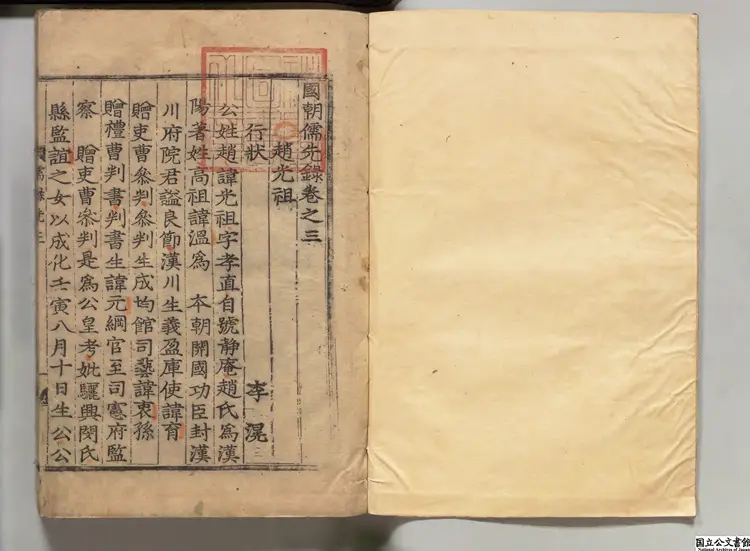 國朝儒先錄卷之三
趙光祖
行狀　李滉
公姓趙諱光祖字孝直自號靜庵趙氏爲漢
陽著姓高祖諱溫爲　本朝開國功臣封漢
川府院君謚良節漢川生義盈庫使諱育
贈吏曹叅判叅判生成均館司藝諱衷孫
贈禮曹判書判書生諱元綱官至司憲府監
察　贈吏曹叅判是爲公皇考妣驪興閔氏
縣監誼之女以成化壬寅八月十日生公公
国立公文書館
National Archives of Japan